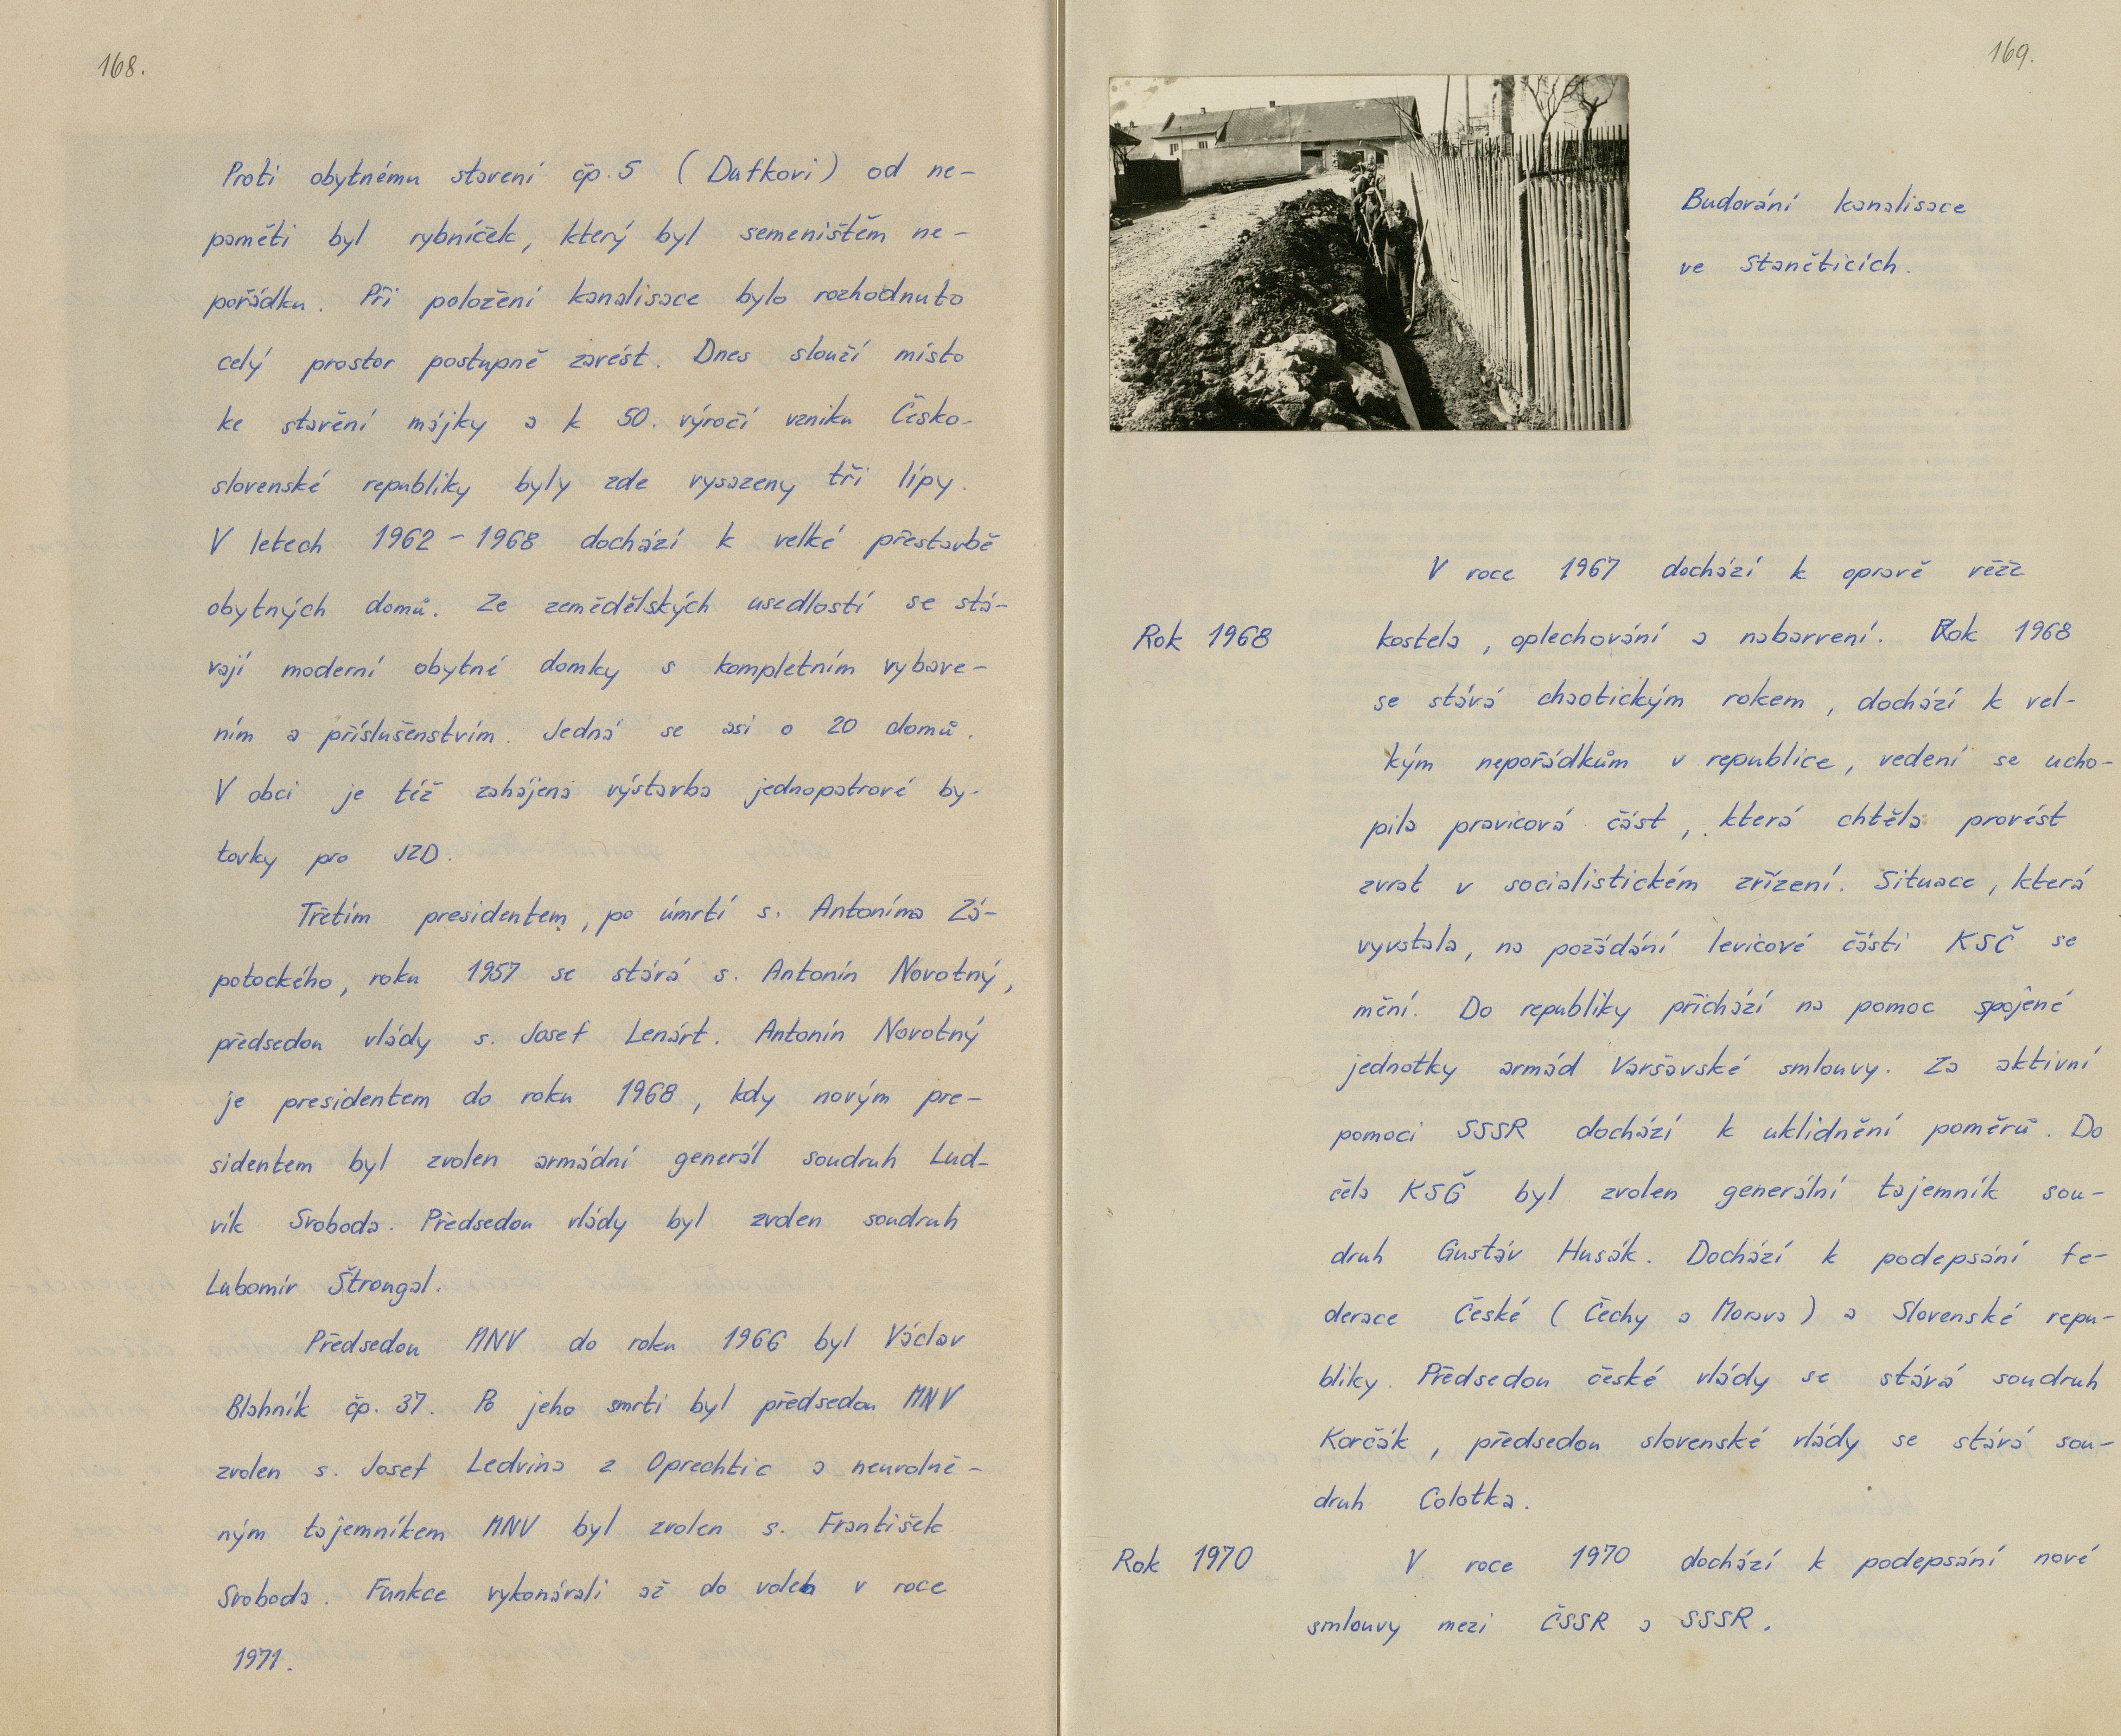 168.
Proti obytnému stavení čp. 5 ( Dufkovi ) od ne-
paměti byl rybníček, který byl semeništěm ne-
pořádku. Při položení kanalisace bylo rozhodnuto
celý prostor postupně zavést. Dnes slouží místo
ke stavění májky a k 50. výročí vzniku Česko-
slovenské republiky byly zde vysazeny tři lípy.
V letech 1962 - 1968 dochází k velké přestavbě
obytných domů. Ze zemědělských usedlostí se stá-
vají moderní obytné domky s kompletním vybave-
ním a příslušenstvím. Jedná se asi o 20 domů.
V obci je též zahájena výstavba jednopatrové by-
tovky pro JZD.
Třetím presidentem, po úmrtí s. Antonína Zá-
potockého, roku 1957 se stává s. Antonín Novotný,
předsedou vlády s. Josef Lenárt. Antonín Novotný
je presidentem do roku 1968, kdy novým pre-
sidentem byl zvolen armádní generál soudruh Lud-
vík Svoboda. Předsedou vlády byl zvolen soudruh
Lubomír Štrougal.
Předsedou MNV do roku 1966 byl Václav
Blahník čp. 37. Po jeho smrti byl předsedou MNV
zvolen s. Josef Ledvina z Oprechtic a neuvolně-
ným tajemníkem MNV byl zvolen s. František
Svoboda. Funkce vykonávali až do voleb v roce
1971.
169.
Budování kanalisace
ve Staněticích.
V roce 1967 dochází k opravě věže
Rok 1968 kostela, oplechování a nabarvení. Rok 1968
se stává chaotickým rokem, dochází k vel-
kým nepořádkům v republice, vedení se ucho-
pila pravicová část, která chtěla provést
zvrat v socialistickém zřízení. Situace, která
vyvstala, na požádání levicové části KSČ se
mění. Do republiky přichází na pomoc spojené
jednotky armád Varšavské smlouvy. Za aktivní
pomoci SSSR dochází k uklidnění poměrů. Do
čela KSČ byl zvolen generální tajemník sou-
druh Gustáv Husák. Dochází k podepsání fe-
derace České ( Čechy a Morava ) a Slovenské repu-
bliky. Předsedou české vlády se stává soudruh
Korčák, předsedou slovenské vlády se stává sou-
druh Colotka.
Rok 1970 V roce 1970 dochází k podepsání nové
smlouvy mezi ČSSR a SSSR.